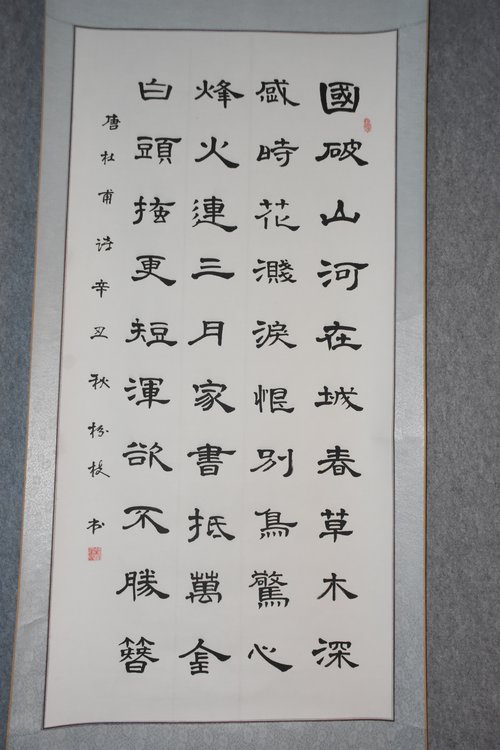 國破山河在城春草木深
感時花濺淚恨別鳥驚心
烽火連三月家書抵萬金
白頭搔更短渾欲不勝簪
唐杜甫诗辛丑秋枝书